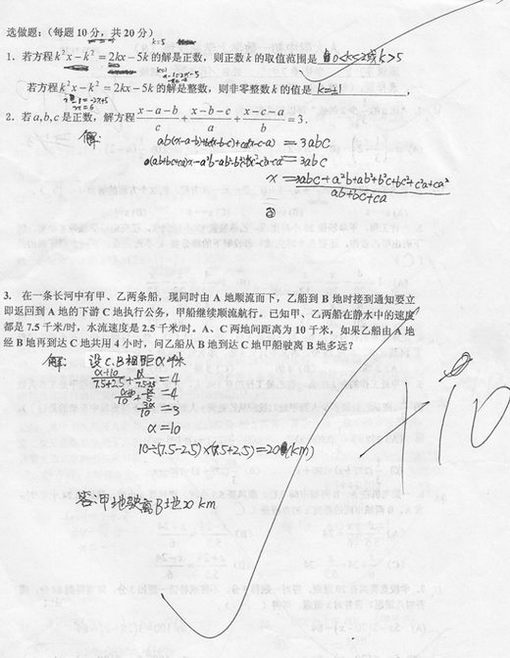 选做题：(每题 10 分，共 20 分)
k=5
1. 若方程 k²x－k²＝2kx－5k 的解是正数，则正数 k 的取值范围是 0<k<2或k>5
若方程 k²x－k²＝2kx－5k 的解是整数，则非零整数 k 的值是 k=±1
2. 若 a,b,c 是正数，解方程 (x－a－b)/c＋(x－b－c)/a＋(x－c－a)/b＝3.
解:
ab(x-a-b)+bc(x-b-c)+ca(x-c-a)=3abc
=3abc
x=(3abc+a²b+ab²+b²c+bc²+c²a+ca²)/(ab+bc+ca)
3. 在一条长河中有甲、乙两条船，现同时由 A 地顺流而下，乙船到 B 地时接到通知要立
即返回到 A 地的下游 C 地执行公务，甲船继续顺流航行。已知甲、乙两船在静水中的速度
都是 7.5 千米/时，水流速度是 2.5 千米/时。A、C 两地间距离为 10 千米，如果乙船由 A 地
经 B 地再到达 C 地共用 4 小时，问乙船从 B 地到达 C 地甲船驶离 B 地多远？
解: 设C.B相距x千米
(x+10)/(7.5+2.5)+x/(7.5-2.5)=4
(x+10)/10+x/5=4
3x/10=3
x=10
10÷(7.5-2.5)×(7.5+2.5)=20(km)
答:甲地驶离B地20km
+10